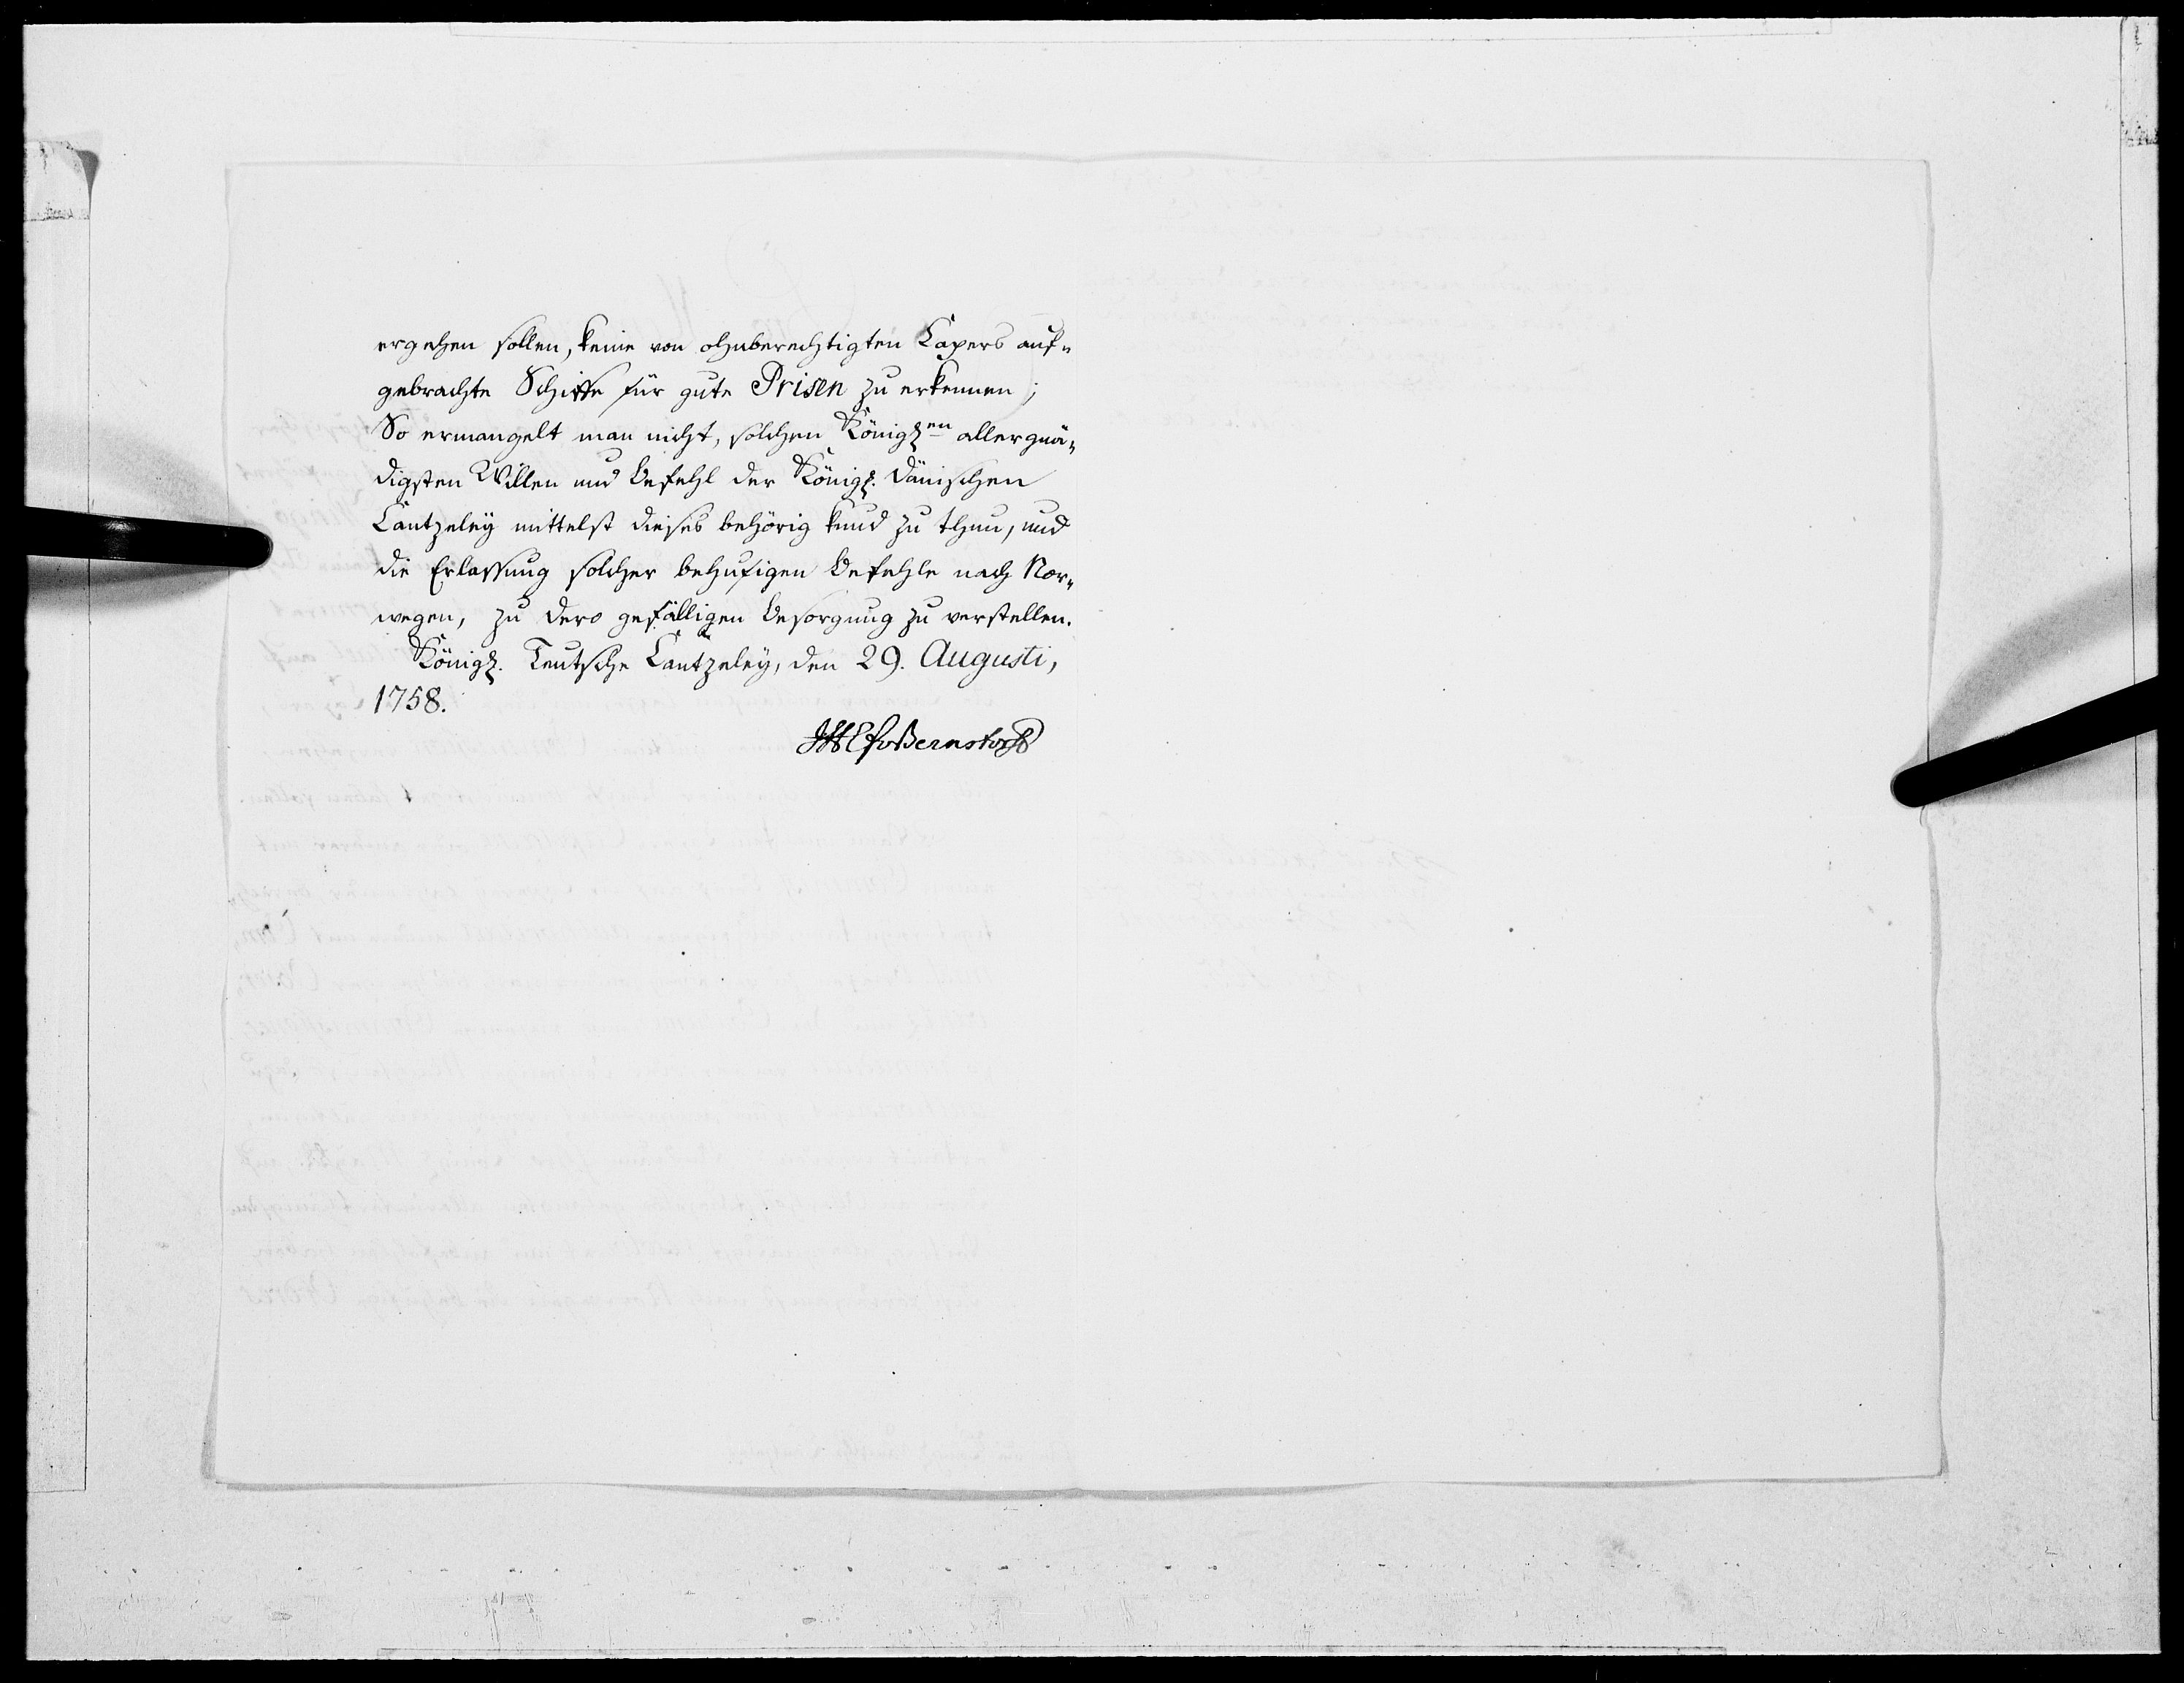 ergehen sollen, keine von ohnberechtigten Capers auf„
gebrachte Schiffe für gute Prisen zu erkennen;
So ermangelt man nicht, solchen Königl.en allergnä„
digsten Willen und Befehl der Königl. Dänischen
Cantzeley mittelst dieses behörig kund zu thun, und
die Erlassung solcher behufigen Befehle nach Nor„
wegen, zu dero gefälligen Besorgung zu verstellen.
Königl. Teutsche Cantzeley, den 29. Augusti,
1758.
JHE v Bernstorff